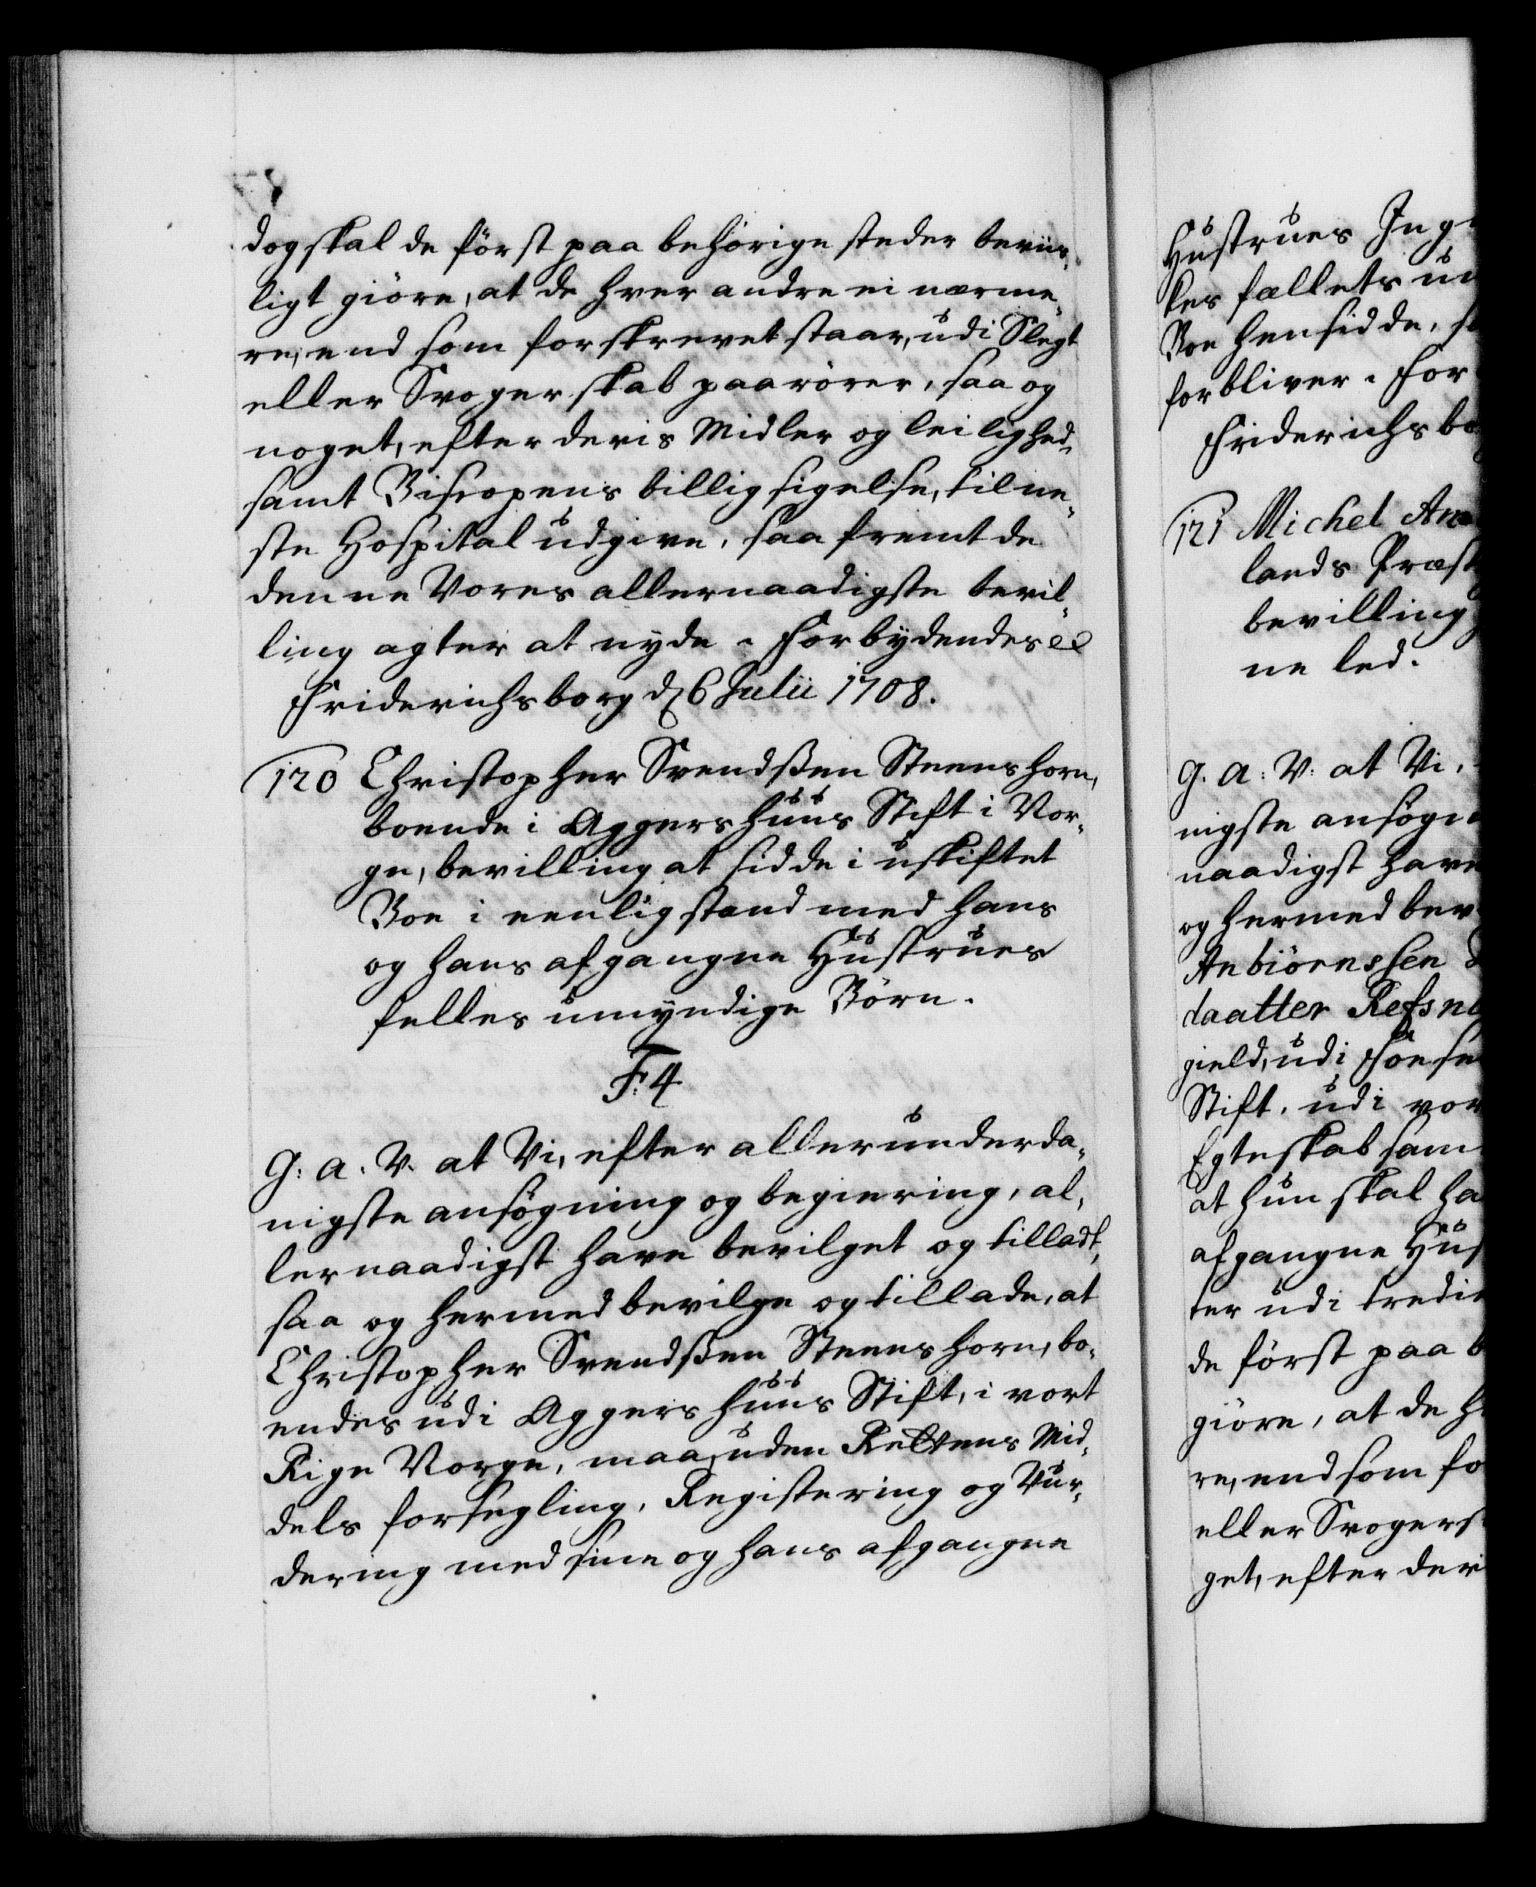 dog skal de först paa behörige steder beviis„
ligt giöre, at de hver andre ei nærme„
re, end som forskrevet staar, udi Slegt
eller Svogerskab paarörer, saa og
noget, efter deris Midler og leilighed„
samt Biscopens billigsigelse, til ne„
ste Hospital udgive, saa fremt de
denne Vores allernaadigste bevil„
ling agter at nyde. Forbydendes &c
Friderichsborg d. 6 Julii 1708.
120 Christopher Svendßen Steenshorn,
boende i Aggershuus Stift i Nor„
ge, bevilling at sidde i uskiftet
Boe i eenlig stand med hans
og hans afgangne Hustrues
felles umyndige Börn.
F. 4
G: a. V. at Vi, efter allerunderda„
nigste ansögning og begiering, al„
lernaadigst have bevilget og tilladt,
saa og hermed bevilge og tillade, at
Christopher Svendßen Steenshorn, bo„
endes udi Aggershuus Stift, i vort
Rige Norge, maa, uden Rettens Mid„
dels forsegling, Registering og Vur„
dering med sine og hans afgangne
Hustrues
les fællets
Boe hensidde,
forbliver. For
Friderichsbo
121 Michel
lands Præst
bevilling
ne led.
G. A: V: at Vi,
nigste ansögn
naadigst have
og hermed bev
Anbiörnssen
daatter Refsn
gield, udi
Stift, udi vor
Egteskab sam
at hun skal ha
afgangne Hus
ter udi tredie
de först paa b
giöre, at de h
re, end som fo
eller Svogers
get, efter der